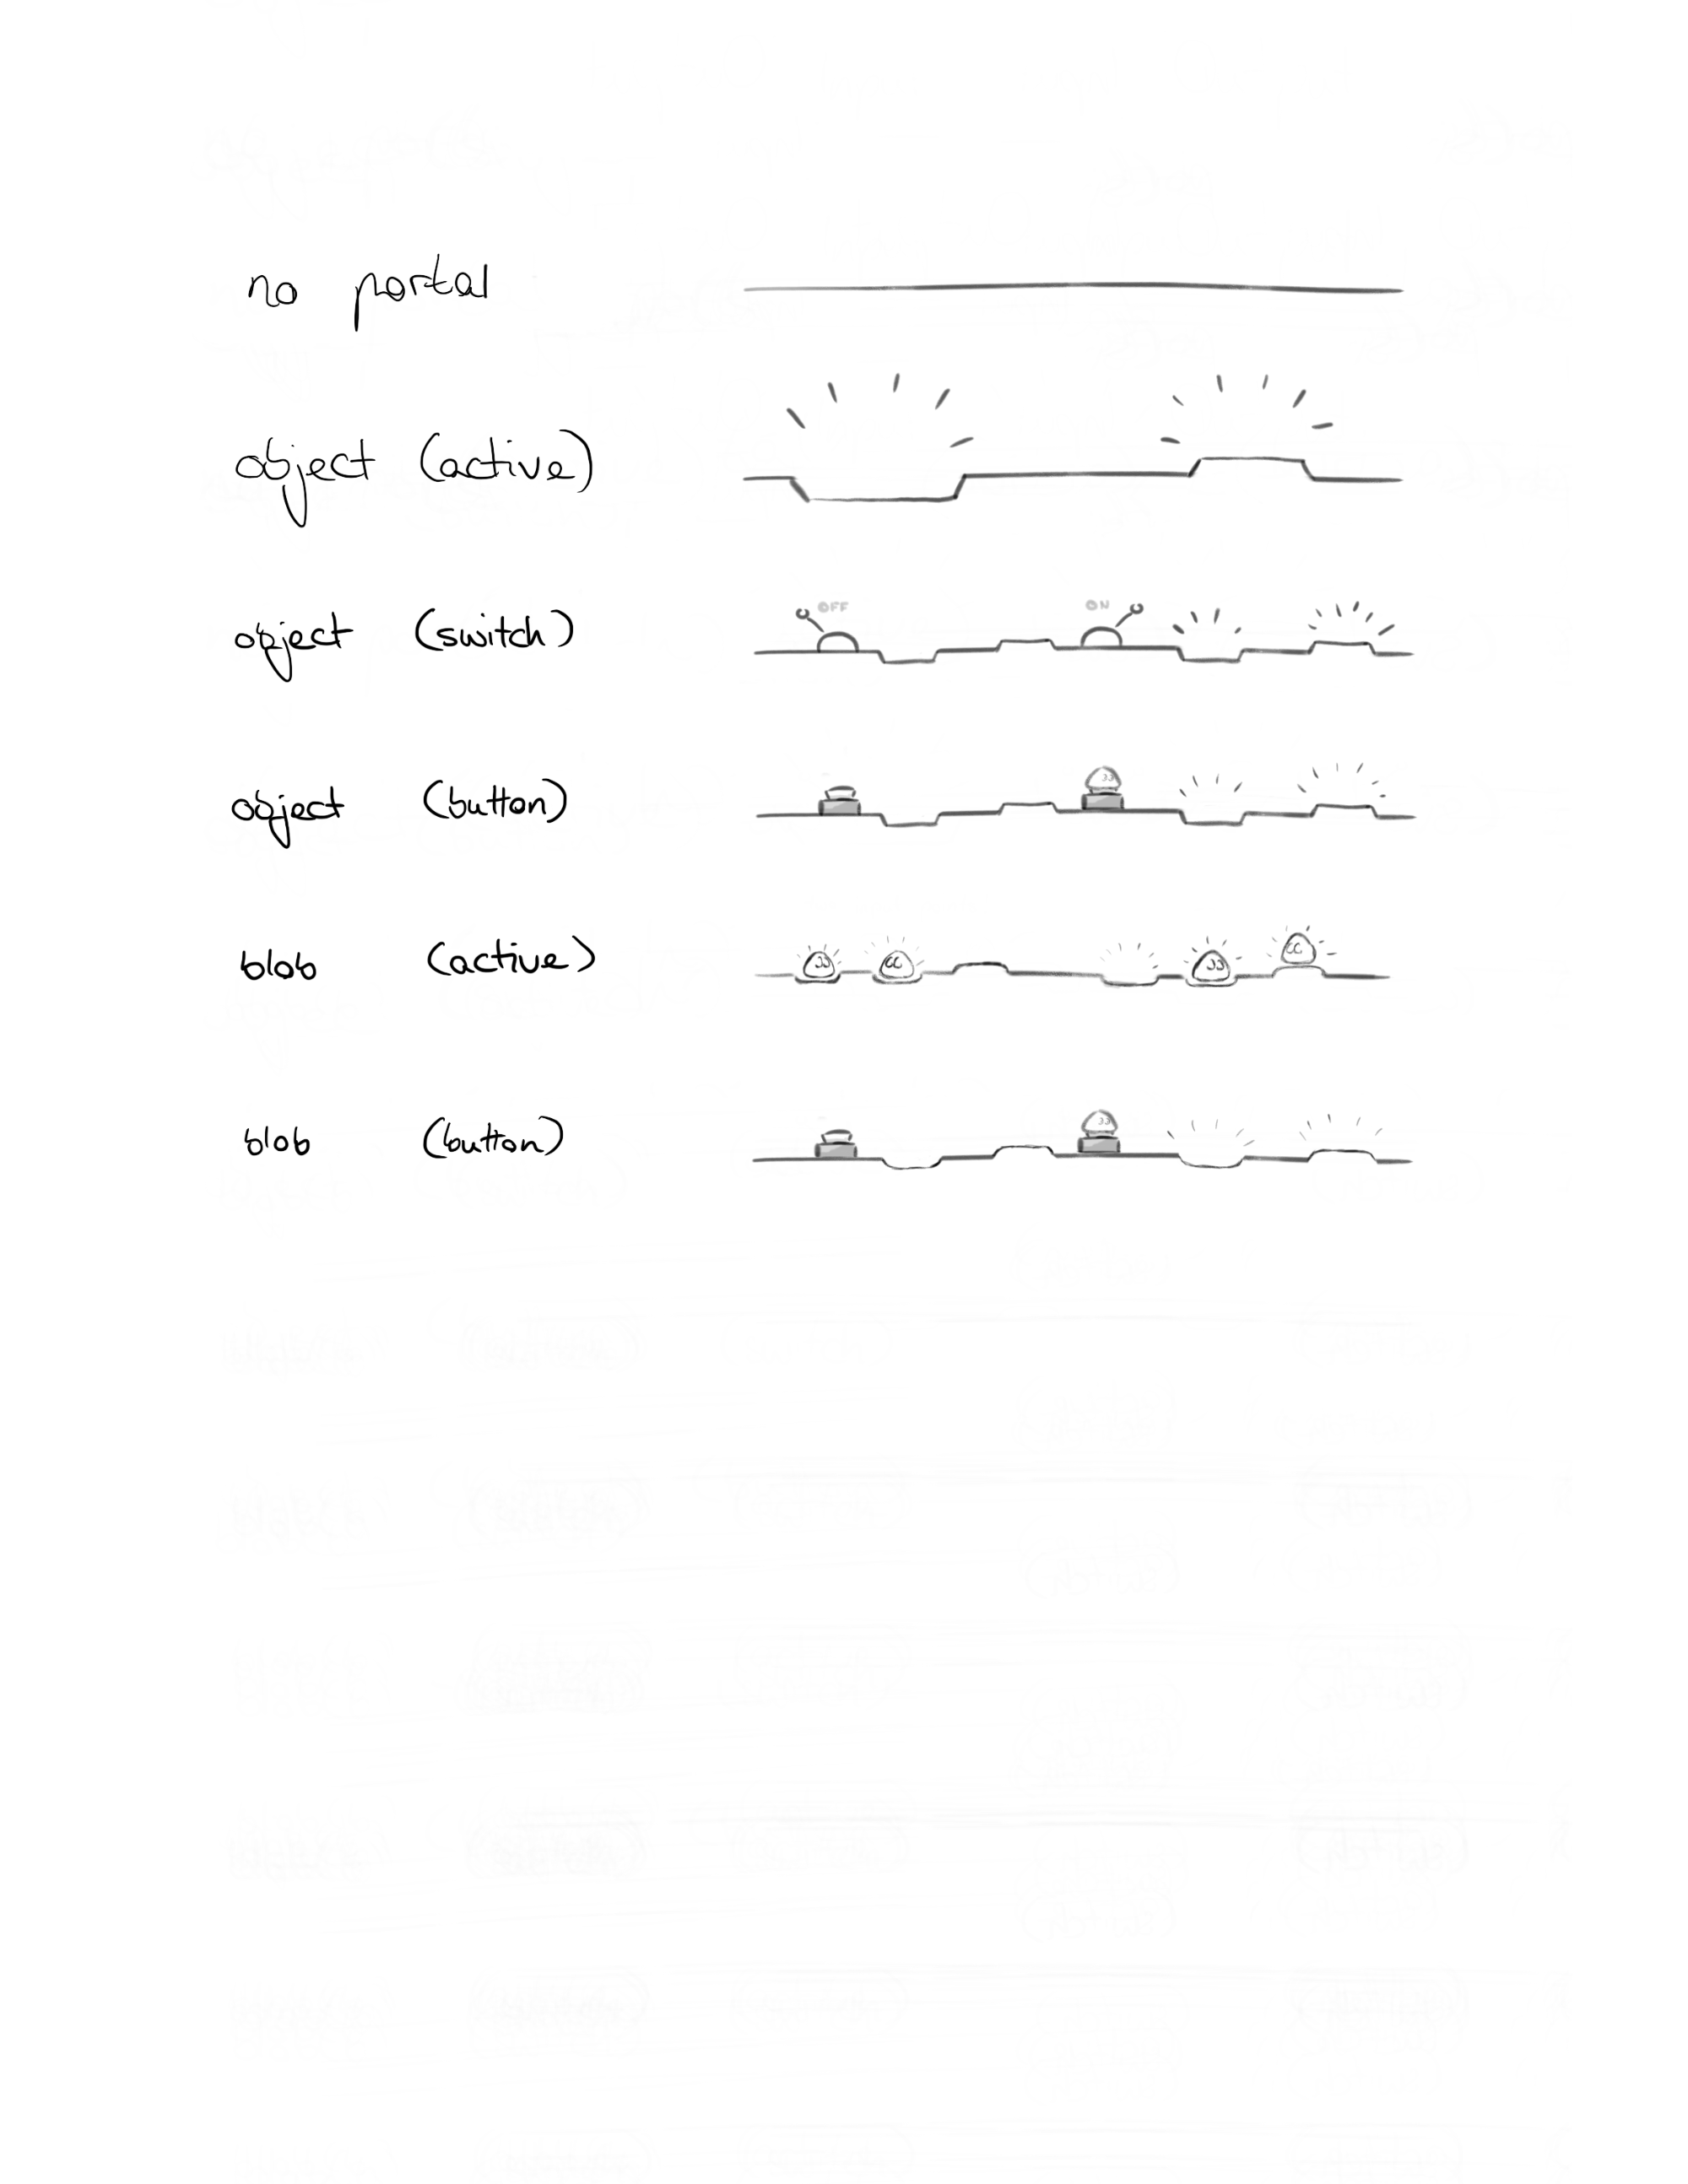 no portal
object (active)
object (switch) OFF ON
object (button)
blob (active)
blob (button)